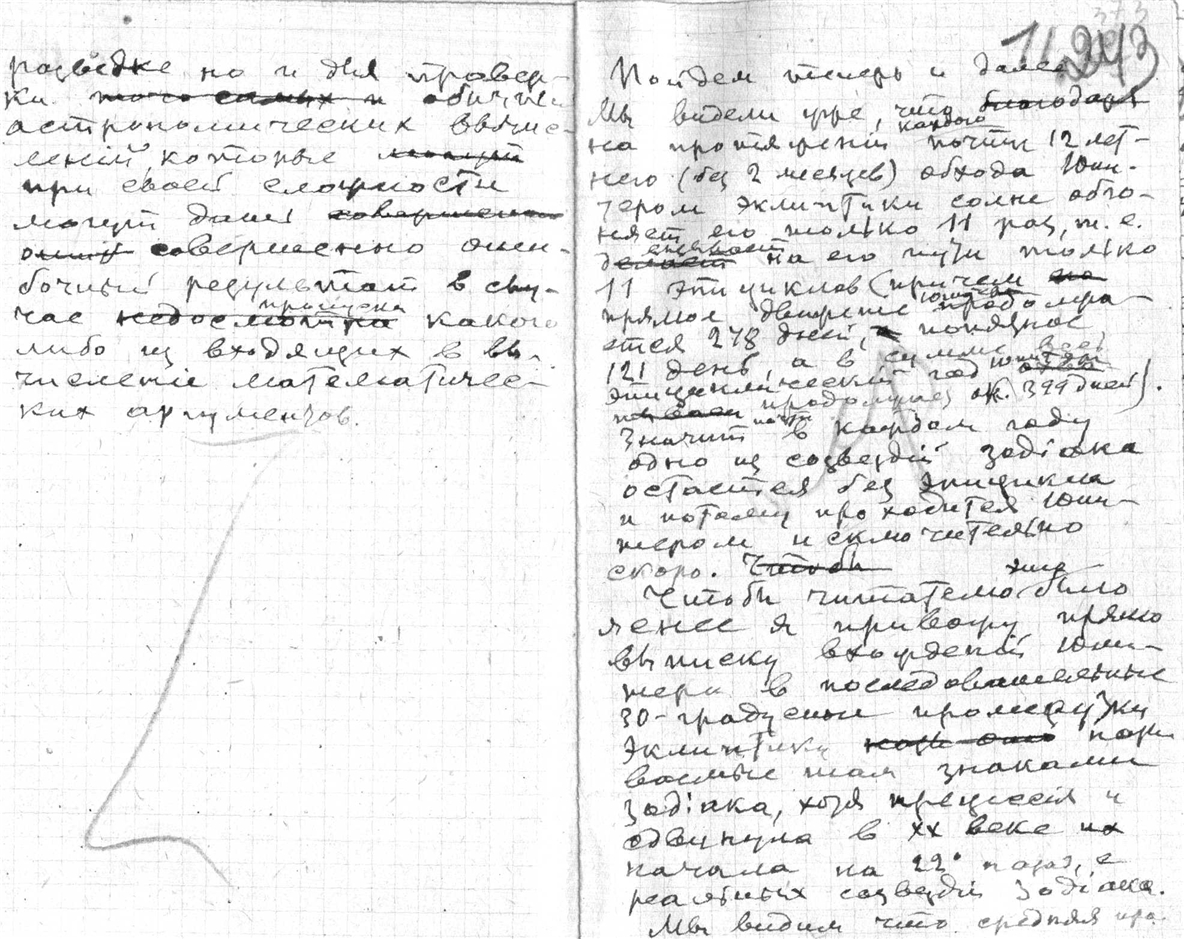 разведке но и для провер-
ки того самых и обычных
астрономических вычис-
лений, которые могут
при своей сложности
могут дать совершенно
ошиб совершенно оши-
бочный результат в слу-
пропуска
чае недосмотра какого
либо из входящих в вы-
числение математичес-
ких аргументов.
373
243
Пойдем теперь и далее
Мы видели уже, что благодаря
каждого
на протяжении почти 12 лет-
него (без 2 месяцев) обхода Юпи-
тером эклиптики солнце обго-
няет его только 11 раз, т. е.
делает на его пути только
11 эпициклов (причем
прямое движение Юпитера продолжа-
ется 278 дней, и попятное
121 день, а в сумме весь
эпициклический год Юпитера
продолжается ок. 399 дней).
почти
Значит в каждом году
одно из созвездий зодіака
остается без эпицикла
и потому проходится Юпи-
тером исключительно
скоро. Чтобы
это
Чтобы читателю было
яснее я привожу прямо
выписку вхождений Юпи-
тера в последовательные
30-градусные промежутки
эклиптики назы-
ваемые там знаками
зодіака, хотя прецессія и
сдвинула в XX веке их
начала на 22° назад, с
реальных созвездій Зодіака.
Мы видим что средняя про-